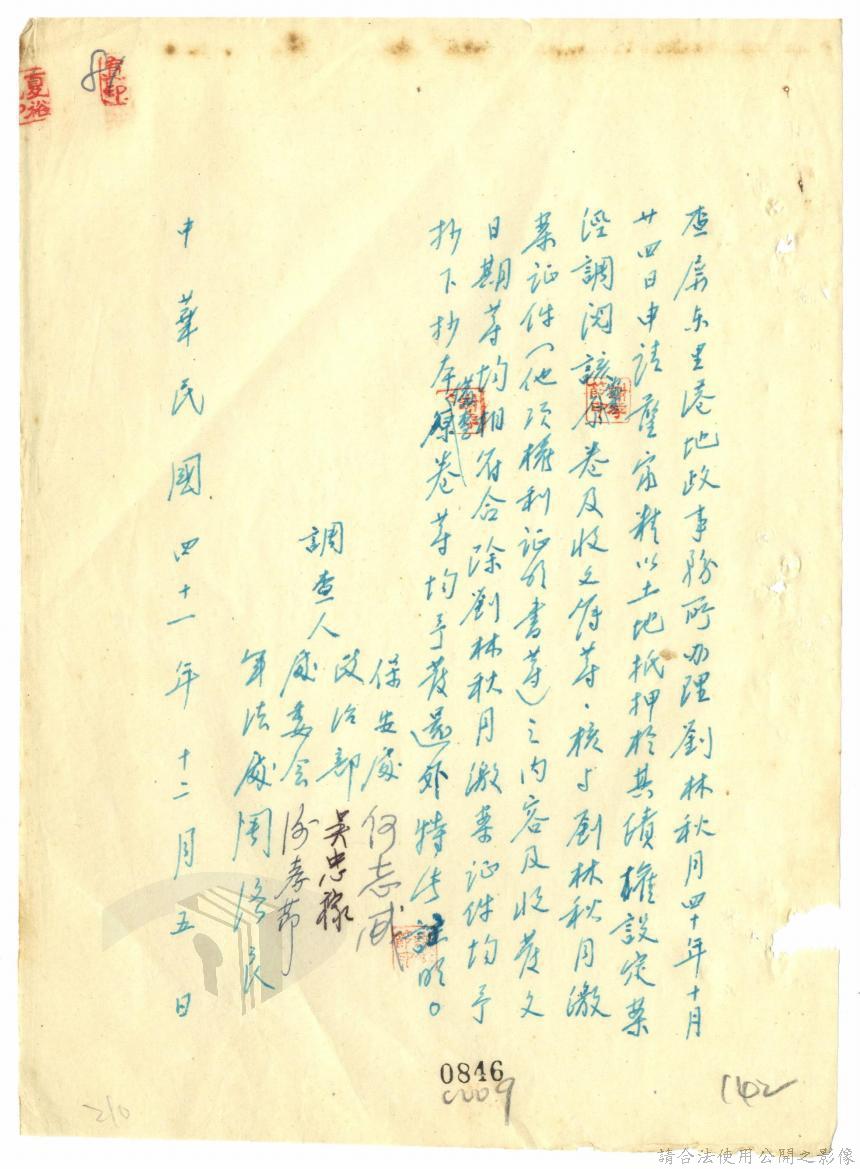 查屏东里港地政事務所办理劉林秋月四十年十月
廿四日申請藍家精以土地抵押於其債權設定案
經調閱該原卷及收文簿等、核与劉林秋月繳
案証件(他項權利証明書等)之內容及收發文
日期等均相符合除劉林秋月繳案証件均予
抄下抄本原卷等均予發還外特此証明。
調查人
保安處 何志威
政治部 吳忠祿
處委会 谢孝節
軍法處 周濟良
中華民國四十一年十二月五日
夏裕
0846
0009
142
210
請合法使用公開之影像